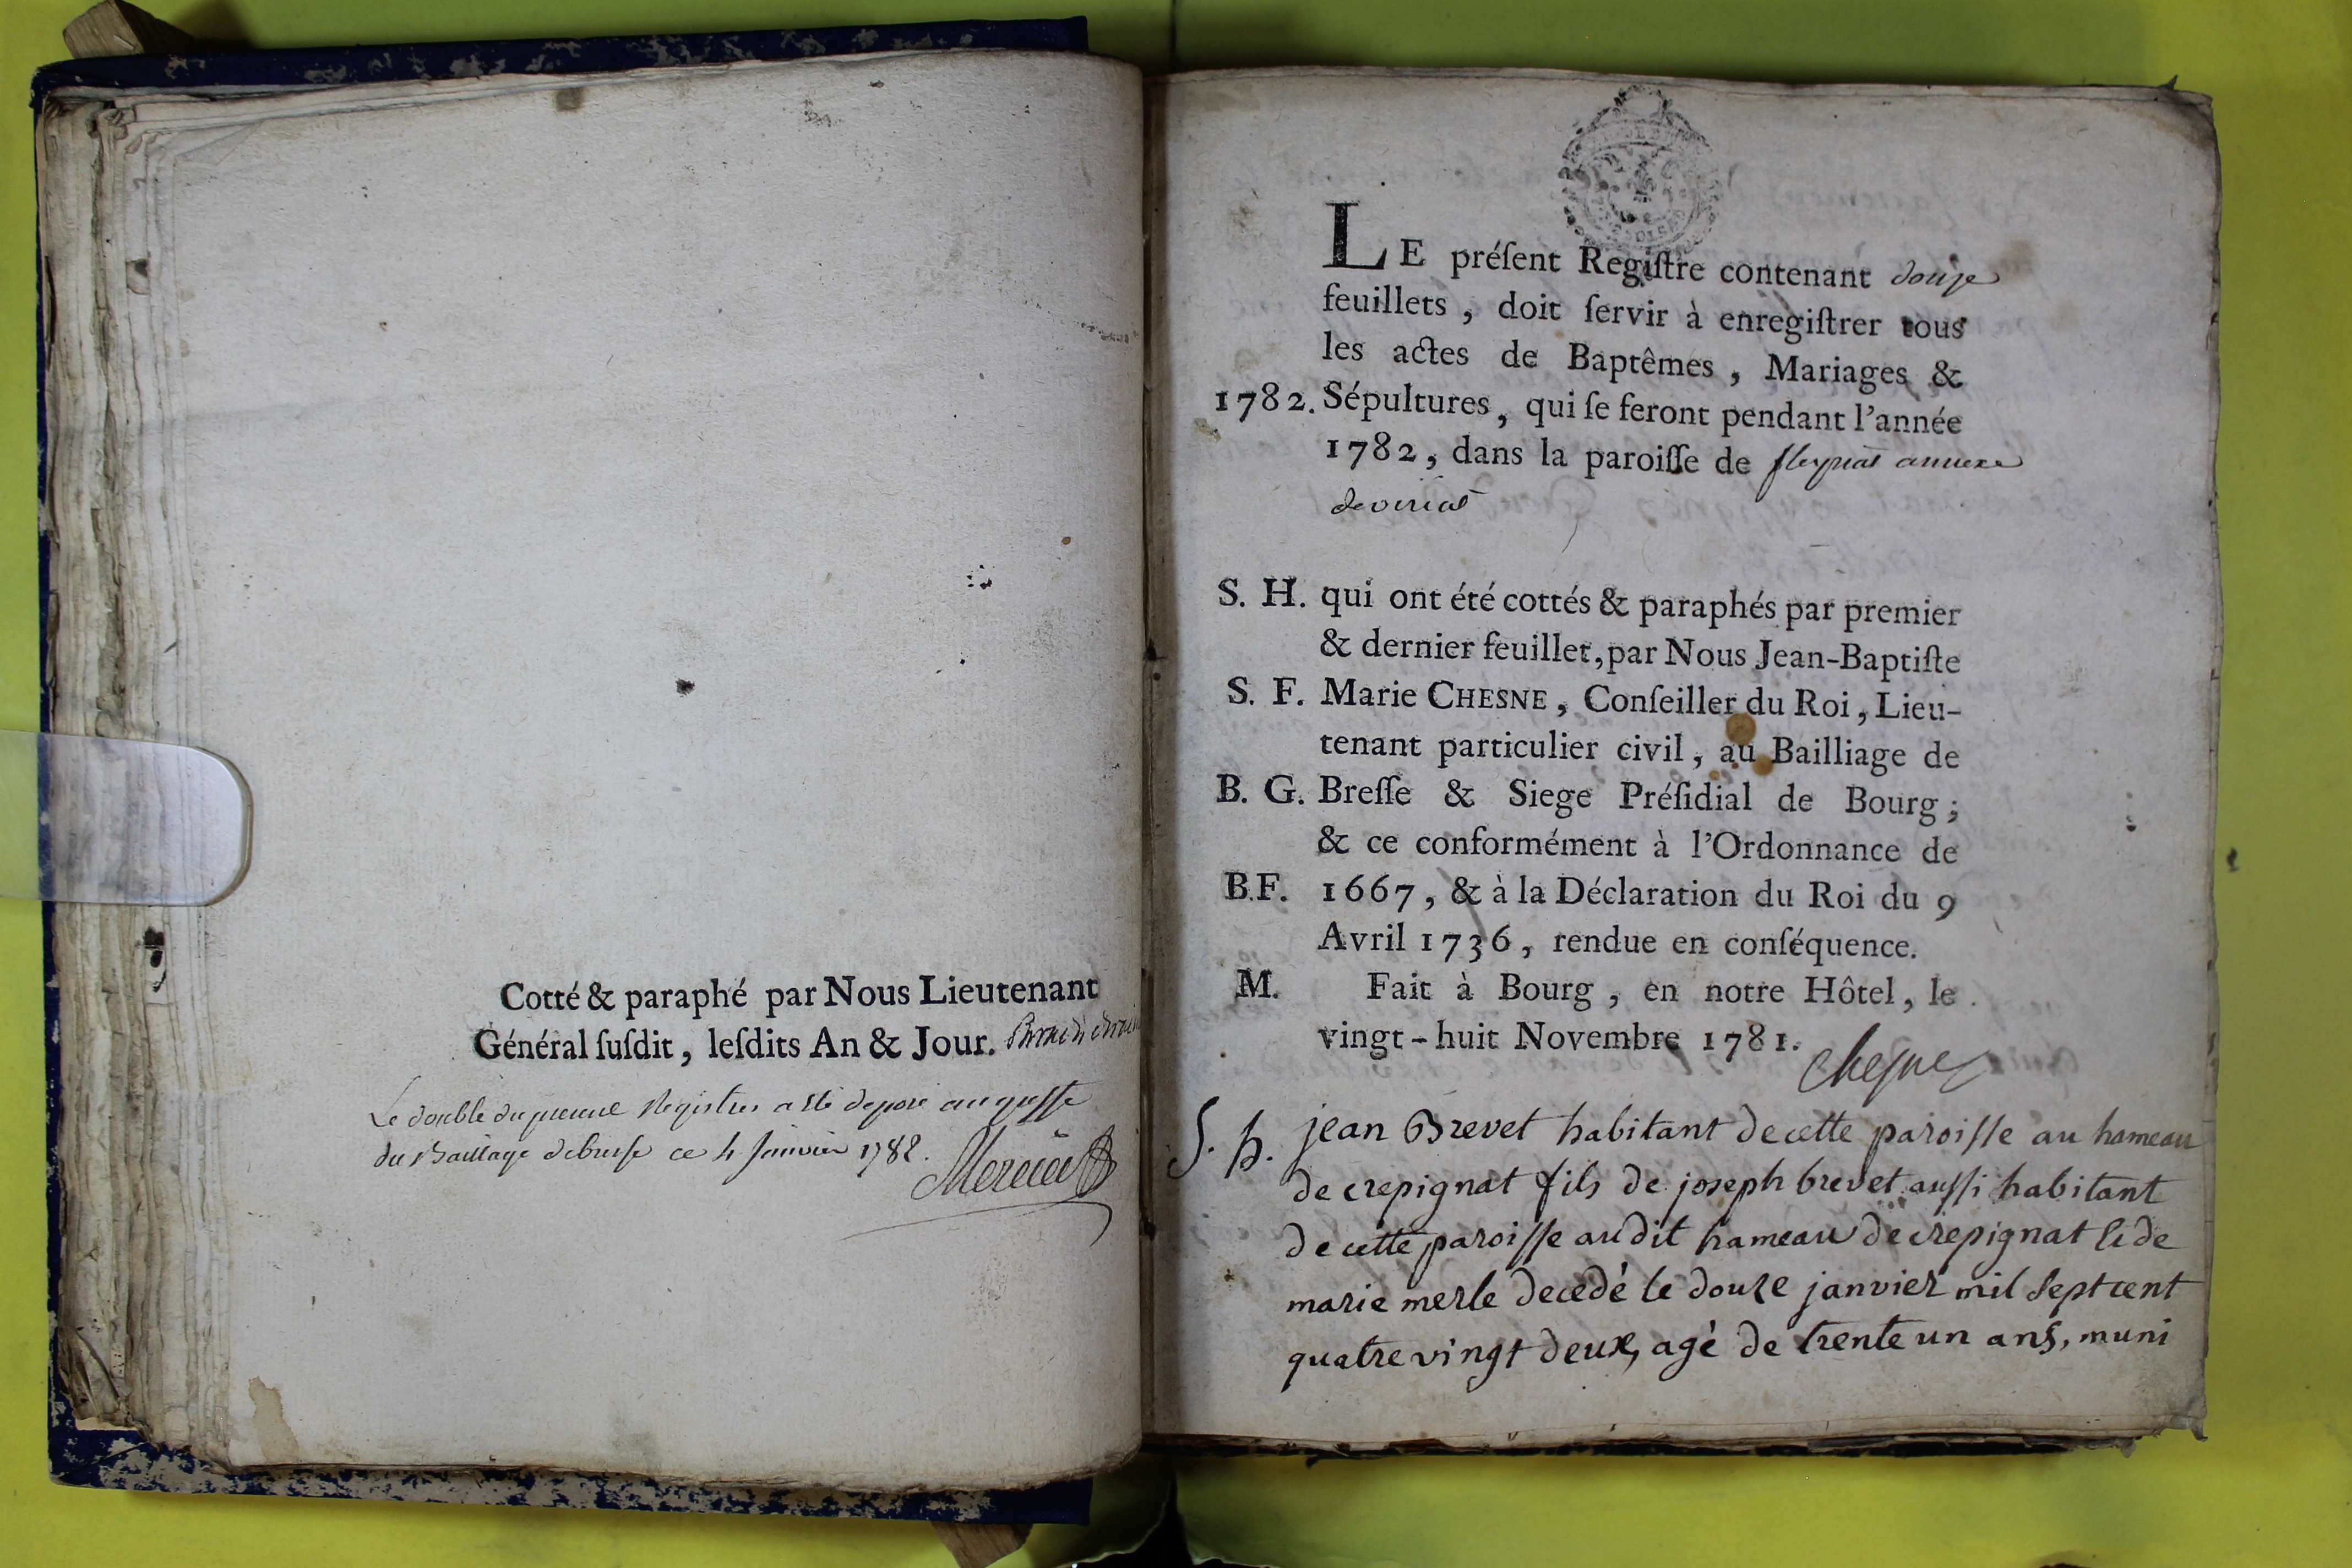 Cotté & paraphé par Nous Lieutenant
Général ſuſdit, leſdits An & Jour.
Le double du present Registres a eté deposé au greffe
du Baillage de bresse ce 4 Janvier 1782.
Mercier
LE préſent Regiſtre contenant douze
feuillets, doit ſervir à enregiſtrer tous
les actes de Baptêmes, Mariages &
1782. Sépultures, qui ſe feront pendant l'année
1782, dans la paroiſſe de fleyriat annexe
de viriat
S. H. qui ont été cottés & paraphés par premier
& dernier feuillet, par Nous Jean-Baptiſte
S. F. Marie CHESNE, Conſeiller du Roi, Lieu-
tenant particulier civil, au Bailliage de
B. G. Breſſe & Siege Préſidial de Bourg;
& ce conformément à l'Ordonnance de
B.F. 1667, & à la Déclaration du Roi du 9
Avril 1736, rendue en conſéquence.
M. Fait à Bourg, en notre Hôtel, le
vingt-huit Novembre 1781.
Chesne
S. h. jean Brevet habitant de cette paroisse au hameau
de crepignat fils de joseph brevet aussi habitant
de cette paroisse au dit hameau de crepignat & de
marie merle decedé le douze janvier mil sept cent
quatre vingt deux, agé de trente un ans, muni